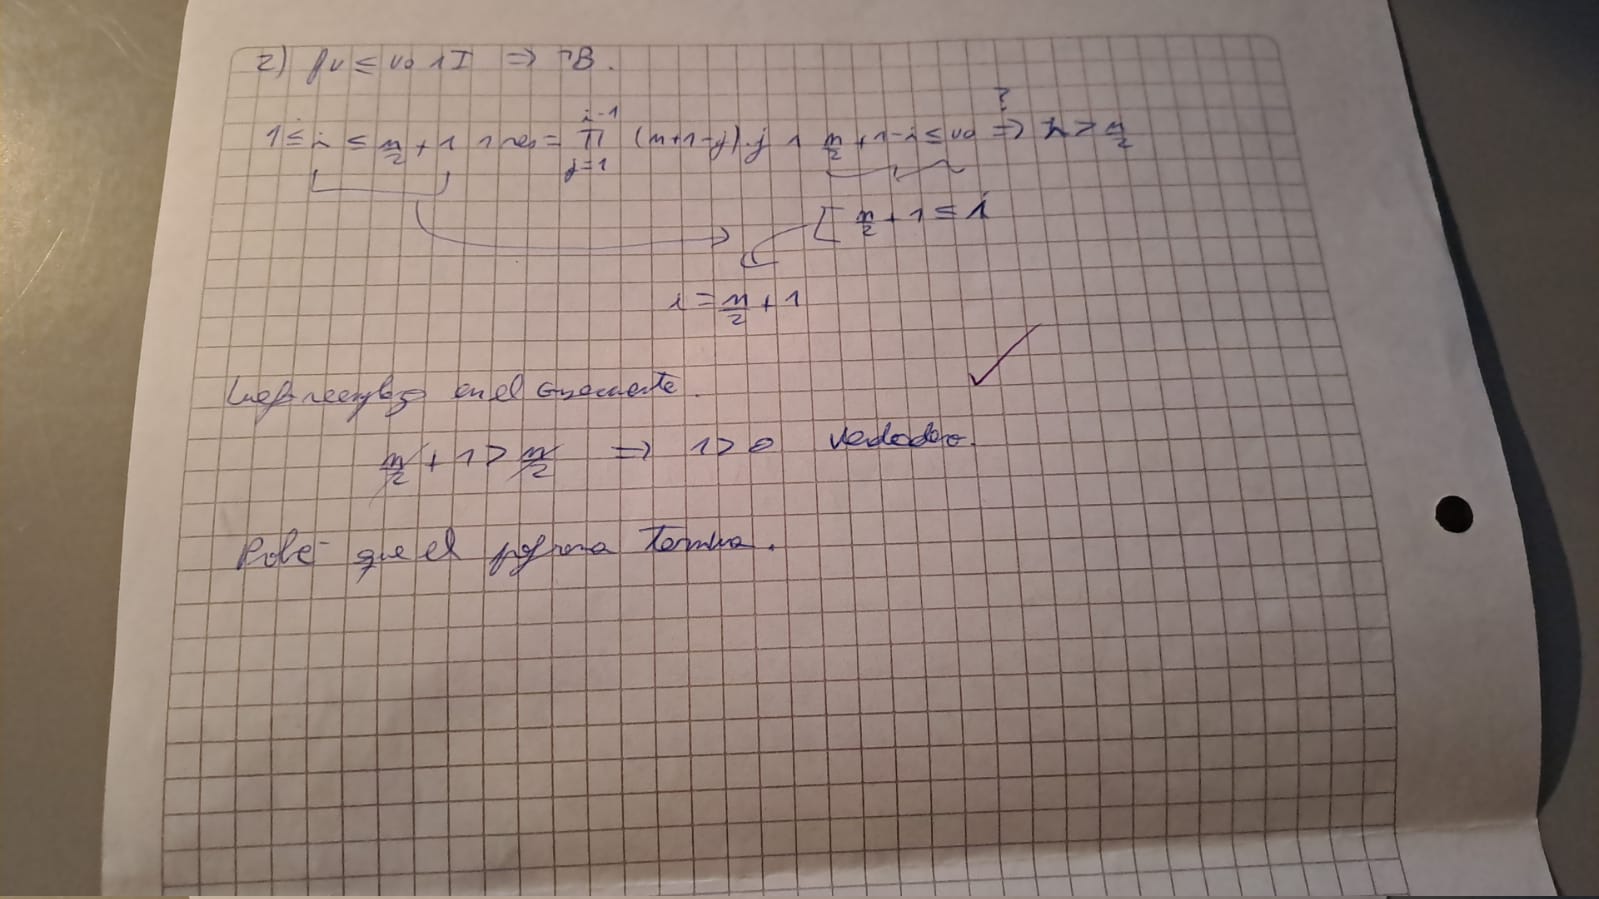 2) fv ≤ v0 ∧ I ⇒ ¬B.
1 ≤ i ≤ n/2 + 1 ∧ res = ∏_{j=1}^{i-1} (n+1-j).j ∧ n/2 + 1 - i ≤ v0 ?⇒ i > n/2
[ n/2 + 1 ≤ i
i = n/2 + 1
Luego reemplazo en el consecuente.
n/2 + 1 > n/2 ⇒ 1 > 0 verdadero.
Probé que el programa termina.